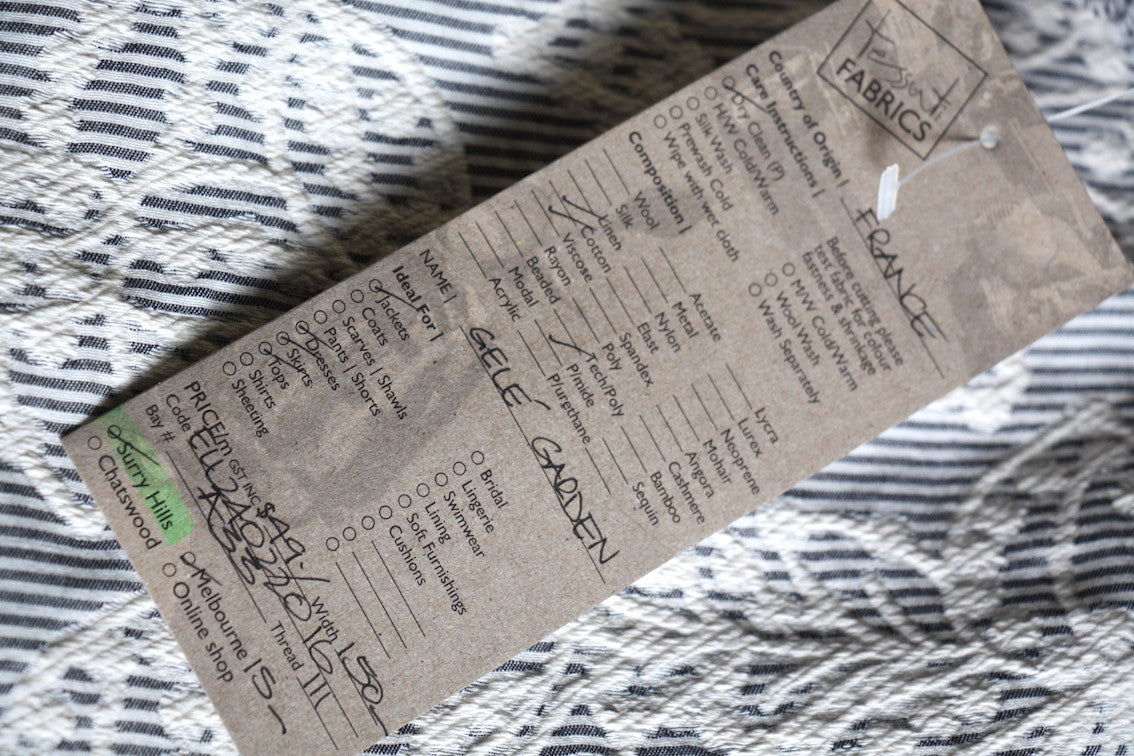 Tessuti
FABRICS
Country of Origin | FRANCE
Care Instructions |
Dry Clean (P)
H/W Cold/Warm
Silk Wash
Prewash Cold
Wipe with wet cloth
Before cutting please
test fabric for colour
fastness & shrinkage
M/W Cold/Warm
Wool Wash
Wash Separately
Composition |
Wool
Silk
Linen
Cotton
Viscose
Rayon
Beaded
Modal
Acrylic
Acetate
Metal
Nylon
Elast
Spandex
Poly
Tech/Poly
Pinide
Plurethane
Lycra
Lurex
Neoprene
Mohair
Angora
Cashmere
Bamboo
Sequin
NAME | GELÉ GARDEN
Ideal For |
Jackets
Coats
Scarves | Shawls
Pants | Shorts
Dresses
Skirts
Tops
Shirts
Sheeting
Bridal
Lingerie
Swimwear
Lining
Soft Furnishings
Cushions
PRICE/m GST INC $49./ Width 150
Code Thread
Bay #
Surry Hills
Chatswood
Melbourne 15-
Online shop